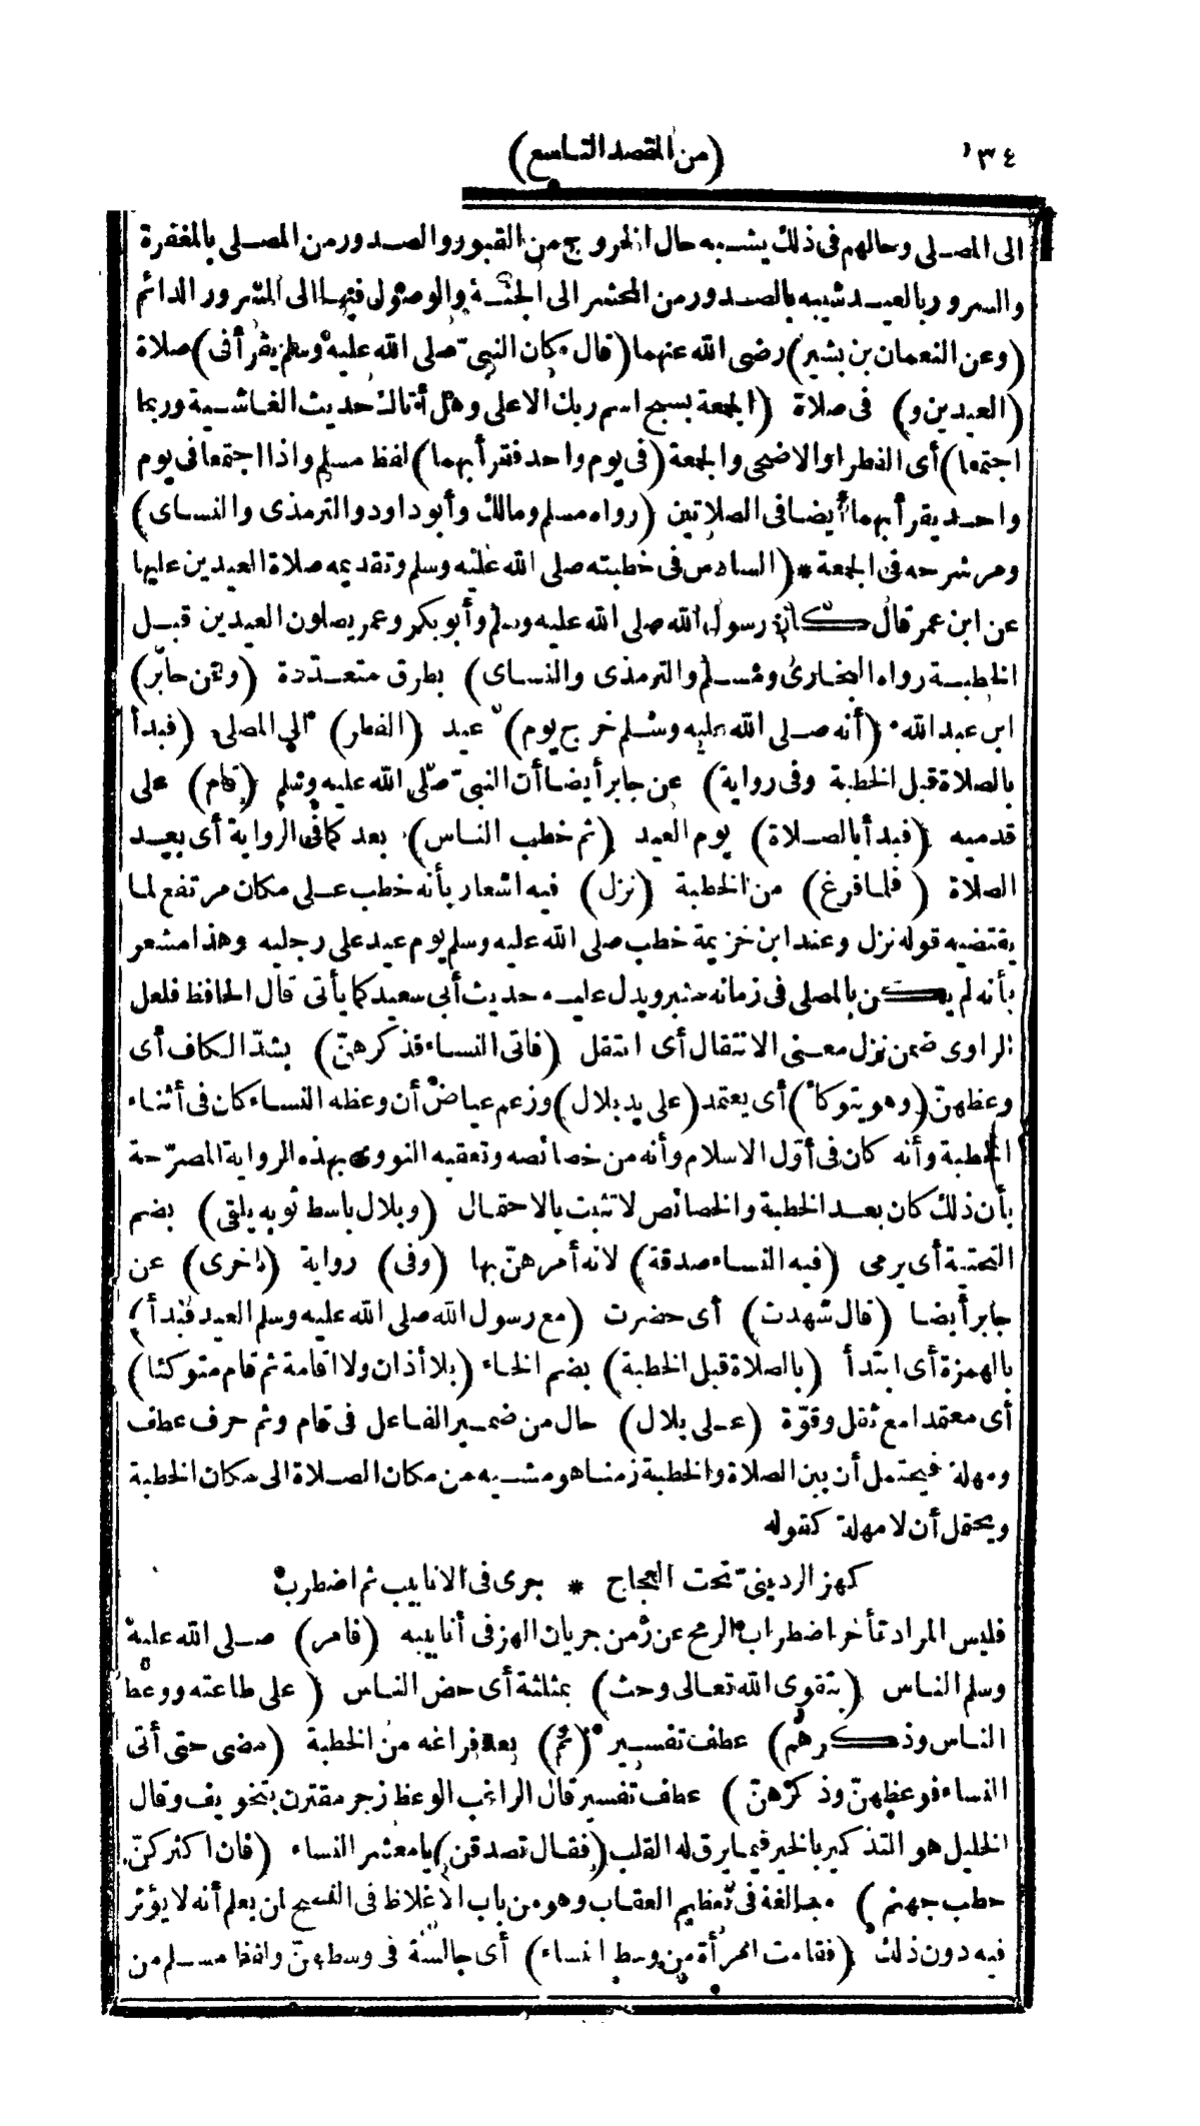 ٣٤ (من المقصد التاسع)
الى المصلى وحالهم فى ذلك يشبه حال الخروج من القبور والصدور من المصلى بالمغفرة
والسرور بالعيد شبيه بالصدور من المحشر الى الجنة والوصول فيها الى السرور الدائم
(وعن النعمان بن بشير) رضى الله عنهما (قال كان النبى صلى الله عليه وسلم يقرأ فى) صلاة
(العيدين و) فى صلاة (الجمعة بسبح اسم ربك الاعلى وهل أتاك حديث الغاشية وربما
اجتمعا) أى الفطر او الاضحى والجمعة (فى يوم واحد فقرأ بهما) لفظ مسلم واذا اجتمعا فى يوم
واحد يقرأ بهما أيضا فى الصلاتين (رواه مسلم ومالك وأبو داود والترمذى والنساى)
ومر شرحه فى الجمعة * (السادس فى خطبته صلى الله عليه وسلم وتقديمه صلاة العيدين عليها
عن ابن عمر قال كان رسول الله صلى الله عليه وسلم وأبو بكر وعمر يصلون العيدين قبل
الخطبة رواه البخارى ومسلم والترمذى والنساى) بطرق متعدّدة (وعن جابر)
ابن عبد الله (أنه صلى الله عليه وسلم خرج يوم) عيد (الفطر) الى المصلى (فبدأ
بالصلاة قبل الخطبة وفى رواية) عن جابر أيضا أن النبىّ صلى الله عليه وسلم (قام) على
قدميه (فبدأ بالصلاة) يوم العيد (ثم خطب الناس) بعد كما فى الرواية أى بعد
الصلاة (فلما فرغ) من الخطبة (نزل) فيه اشعار بأنه خطب على مكان مرتفع لما
يقتضيه قوله نزل وعند ابن خزيمة خطب صلى الله عليه وسلم يوم عيد على رجليه وهذا مشعر
بأنه لم يكن بالمصلى فى زمانه منبر ويدل عليه حديث أبى سعيد كما يأتى قال الحافظ فلعل
الراوى ضمن نزل معنى الانتقال أى انتقل (فاتى النساء فذكرهنّ) بشدّ الكاف أى
وعظهنّ (وهو يتوكأ) أى يعتمد (على يد بلال) وزعم عياض أن وعظه النساء كان فى أثناء
الخطبة وأنه كان فى أوّل الاسلام وأنه من خصائصه وتعقبه النووى بهذه الرواية المصرّحة
بأن ذلك كان بعد الخطبة والخصائص لا تثبت بالاحتمال (وبلال باسط ثوبه يلقى) بضم
التحتية أى يرمى (فيه النساء صدقة) لانه أمرهنّ بها (وفى) رواية (اخرى) عن
جابر أيضا (قال شهدت) أى حضرت (مع رسول الله صلى الله عليه وسلم العيد فبدأ)
بالهمزة أى ابتدأ (بالصلاة قبل الخطبة) بضم الخاء (بلا أذان ولا اقامة ثم قام متوكئا)
أى معتمدا مع ثقل وقوّة (على بلال) حال من ضمير الفاعل فى قام وثم حرف عطف
ومهلة فيحتمل أن بين الصلاة والخطبة زمنا هو مشيه من مكان الصلاة الى مكان الخطبة
ويحتمل أن لا مهلة كقوله
كهز الردينىّ تحت العجاج * جرى فى الانابيب ثم اضطرب
فليس المراد تأخر اضطراب الرمح عن زمن جريان الهز فى أنابيبه (فامر) صلى الله عليه
وسلم الناس (بتقوى الله تعالى وحث) بمثلثة أى حض الناس (على طاعته ووعظ
الناس وذكرهم) عطف تفسير (ثم) بعد فراغه من الخطبة (مضى حتى أتى
النساء فوعظهنّ وذكرهنّ) عطف تفسير قال الراغب الوعظ زجر مقترن بتخويف وقال
الخليل هو التذكير بالخير فيما يرق له القلب (فقال تصدقن) يا معشر النساء (فان اكثركنّ
حطب جهنم) مبالغة فى تعظيم العقاب وهو من باب الاغلاظ فى النصح لمن يعلم أنه لا يؤثر
فيه دون ذلك (فقامت امرأة من وسط النساء) أى جالسة فى وسطهنّ ولفظ مسلم من